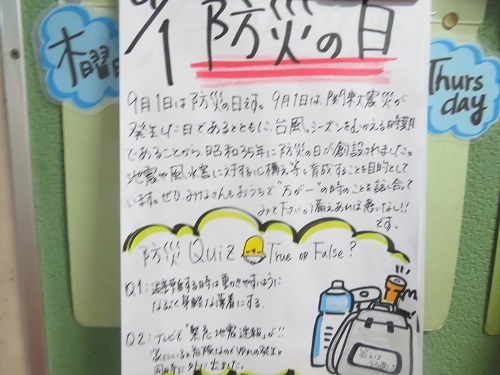 木曜日
9/1 防災の日
Thurs
day
9月1日は防災の日です。9月1日は、関東大震災が
発生した日であるとともに、台風シーズンをむかえる時期
であることから、昭和35年に防災の日が創設されました。
地震や風水害に対する心構え等を育成することを目的として
います。ぜひ、みなさんもおうちで"万が一"の時のことを話し合って
みて下さい。備えあれば憂いなし!!
です。
防災 Quiz True or False?
Q1: 避難する時は動きやすいように
なるべく身軽な薄着にする。
Q2: テレビで"緊急地震速報"が!!